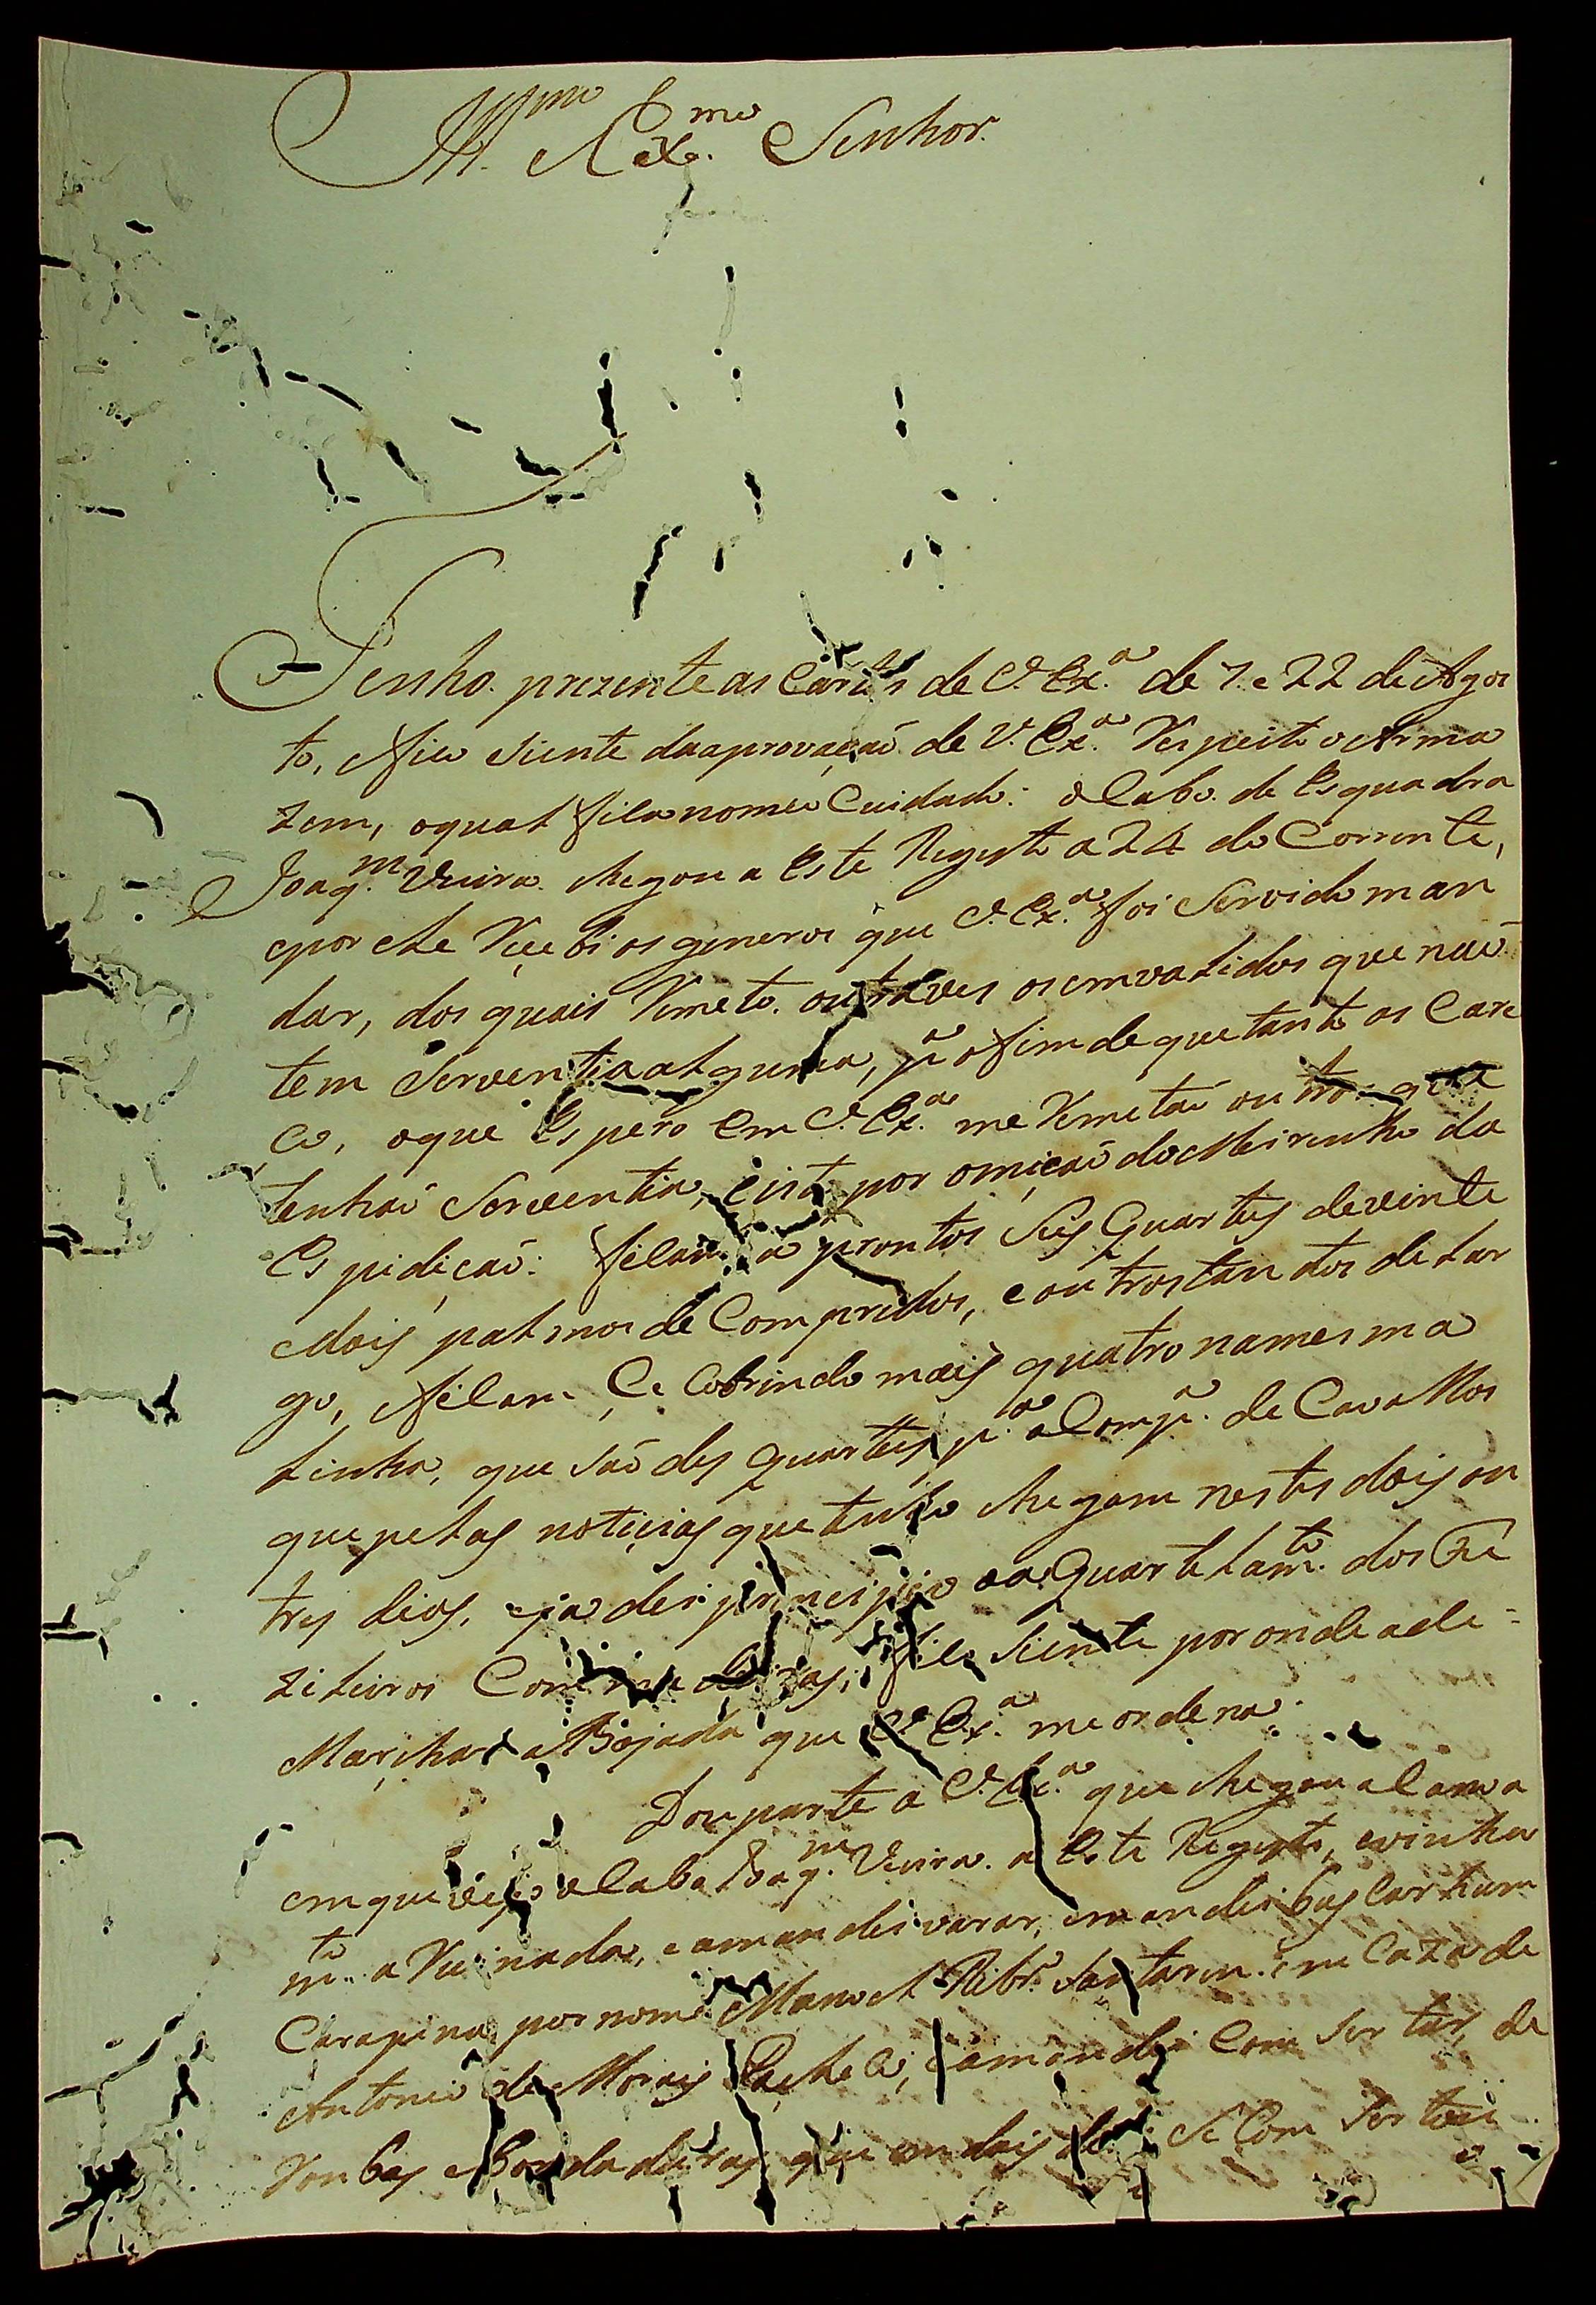 Ill.mo e Ex.mo Senhor
Tenho prezente as Cartas de V. Ex.a de 7 e 22 de Agos
to, e fico siente da aprovaçaõ de V. Ex.a Respeito o Arma
zem, o qual fica no meu Cuidado: o Cabo de Esquadra
Joaq.m Vieira chegou a Este Registo a 24 do Corrente,
e por ele Recebi os generos que V. Ex.a foi Servido man
dar, dos quais Remeto outraves os emvalidos que naõ
tem Serventia alguma, p.a o fim de que tanto os Care
ço, o que Espero em V. Ex.a me Remetaõ outros que
tenhaõ Serventia, e ista por omiçaõ do Meirinho da
Espidiçaõ: ficam já prontos Seis Quarteis de vinte
e dois palmos de Compridos, e outros tantos de Lar
go, e ficam Ce Cobrindo mais quatro na mesma
Linha, que saõ des Quarteis p.a a Comp.a de Cavallos
que pelas noticias que tenho chegam nestes dois ou
tres dias, e já dei principio ao Quartelam.to dos Fu
zileiros Com fico Siente por onde ade
Marchar a Bojada que V. Ex.a me ordena.
Dou parte a V. Ex.a que chegou a Canoa
em que veio o Cabo Joaq.m Vieira a Este Registo, e vinha
m.to a Ruinada, e a mandei varar, e mandei buscar hum
Carapina por nome Manoel Ribr.o Santarem em Caza de
Antonio de Morais e a mandei Com sertar de
Rombas e Bordaduras que em dois dias Se Com sertou